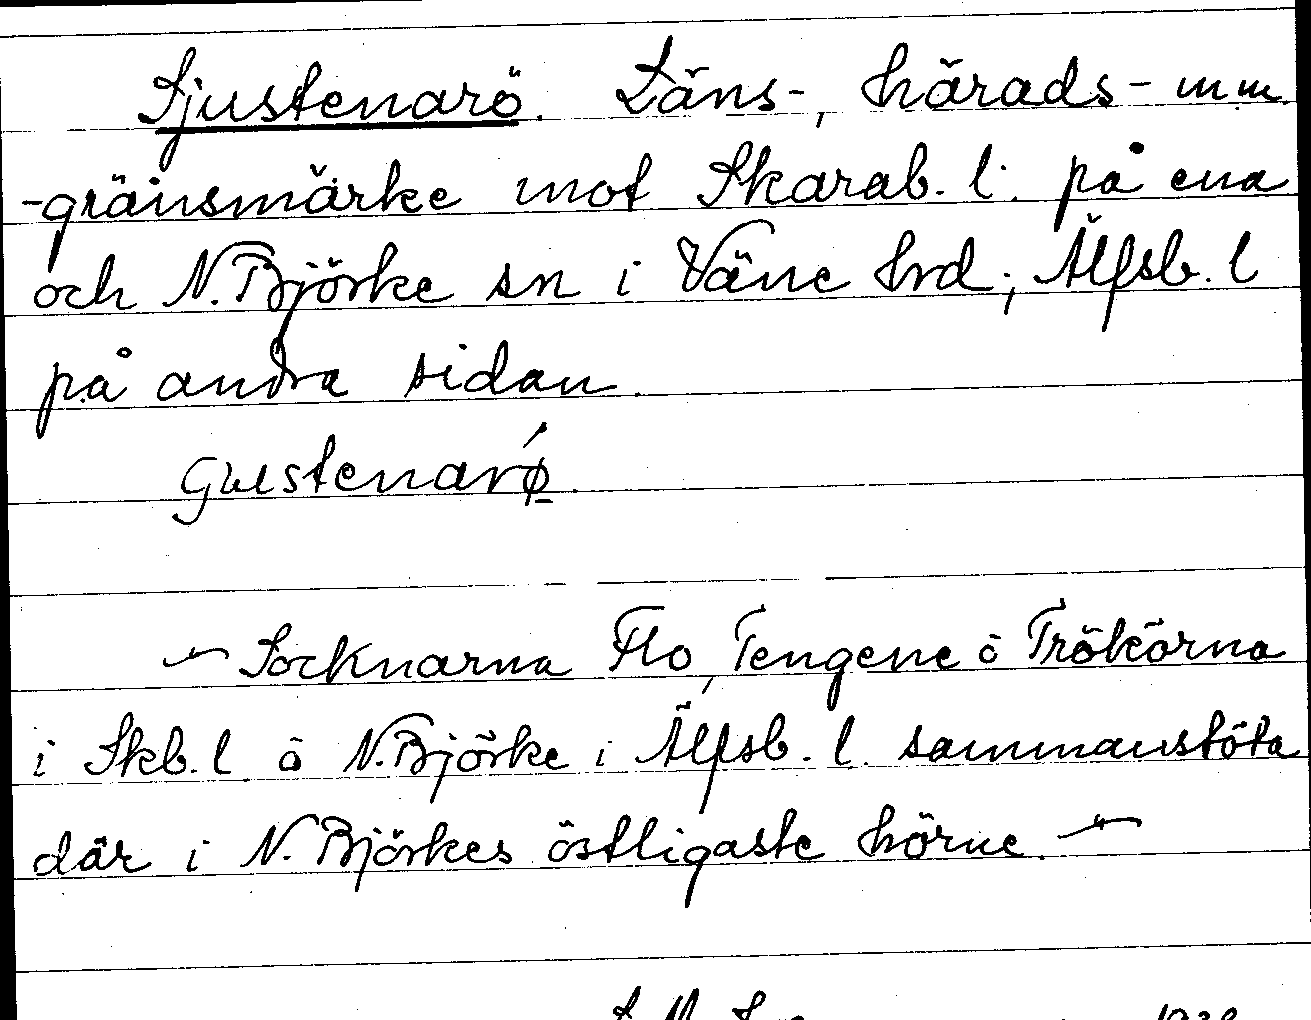 Sjustenarö. Läns-, härads- m m.
-gränsmärke mot Skarab. l. på ena
och N. Björke sn i Väne hrd, Älfsb. l
på andra sidan.
Socknarna Flo, Tengene ö Trökörna
i Skb. l ö N. Björke i Älfsb. l. sammanstöta
där i N. Björkes östligaste hörne.